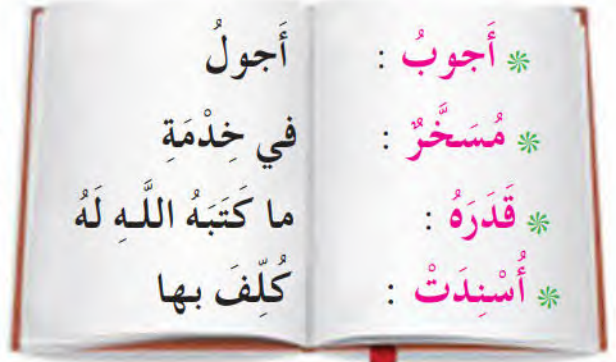 أَجوبُ : أَجولُ
مُسَخَّرٌ : في خِدْمَةِ
قَدَرَهُ : ما كَتَبَهُ اللَّـهِ لَهُ
أُسْنِدَتْ : كُلِّفَ بها